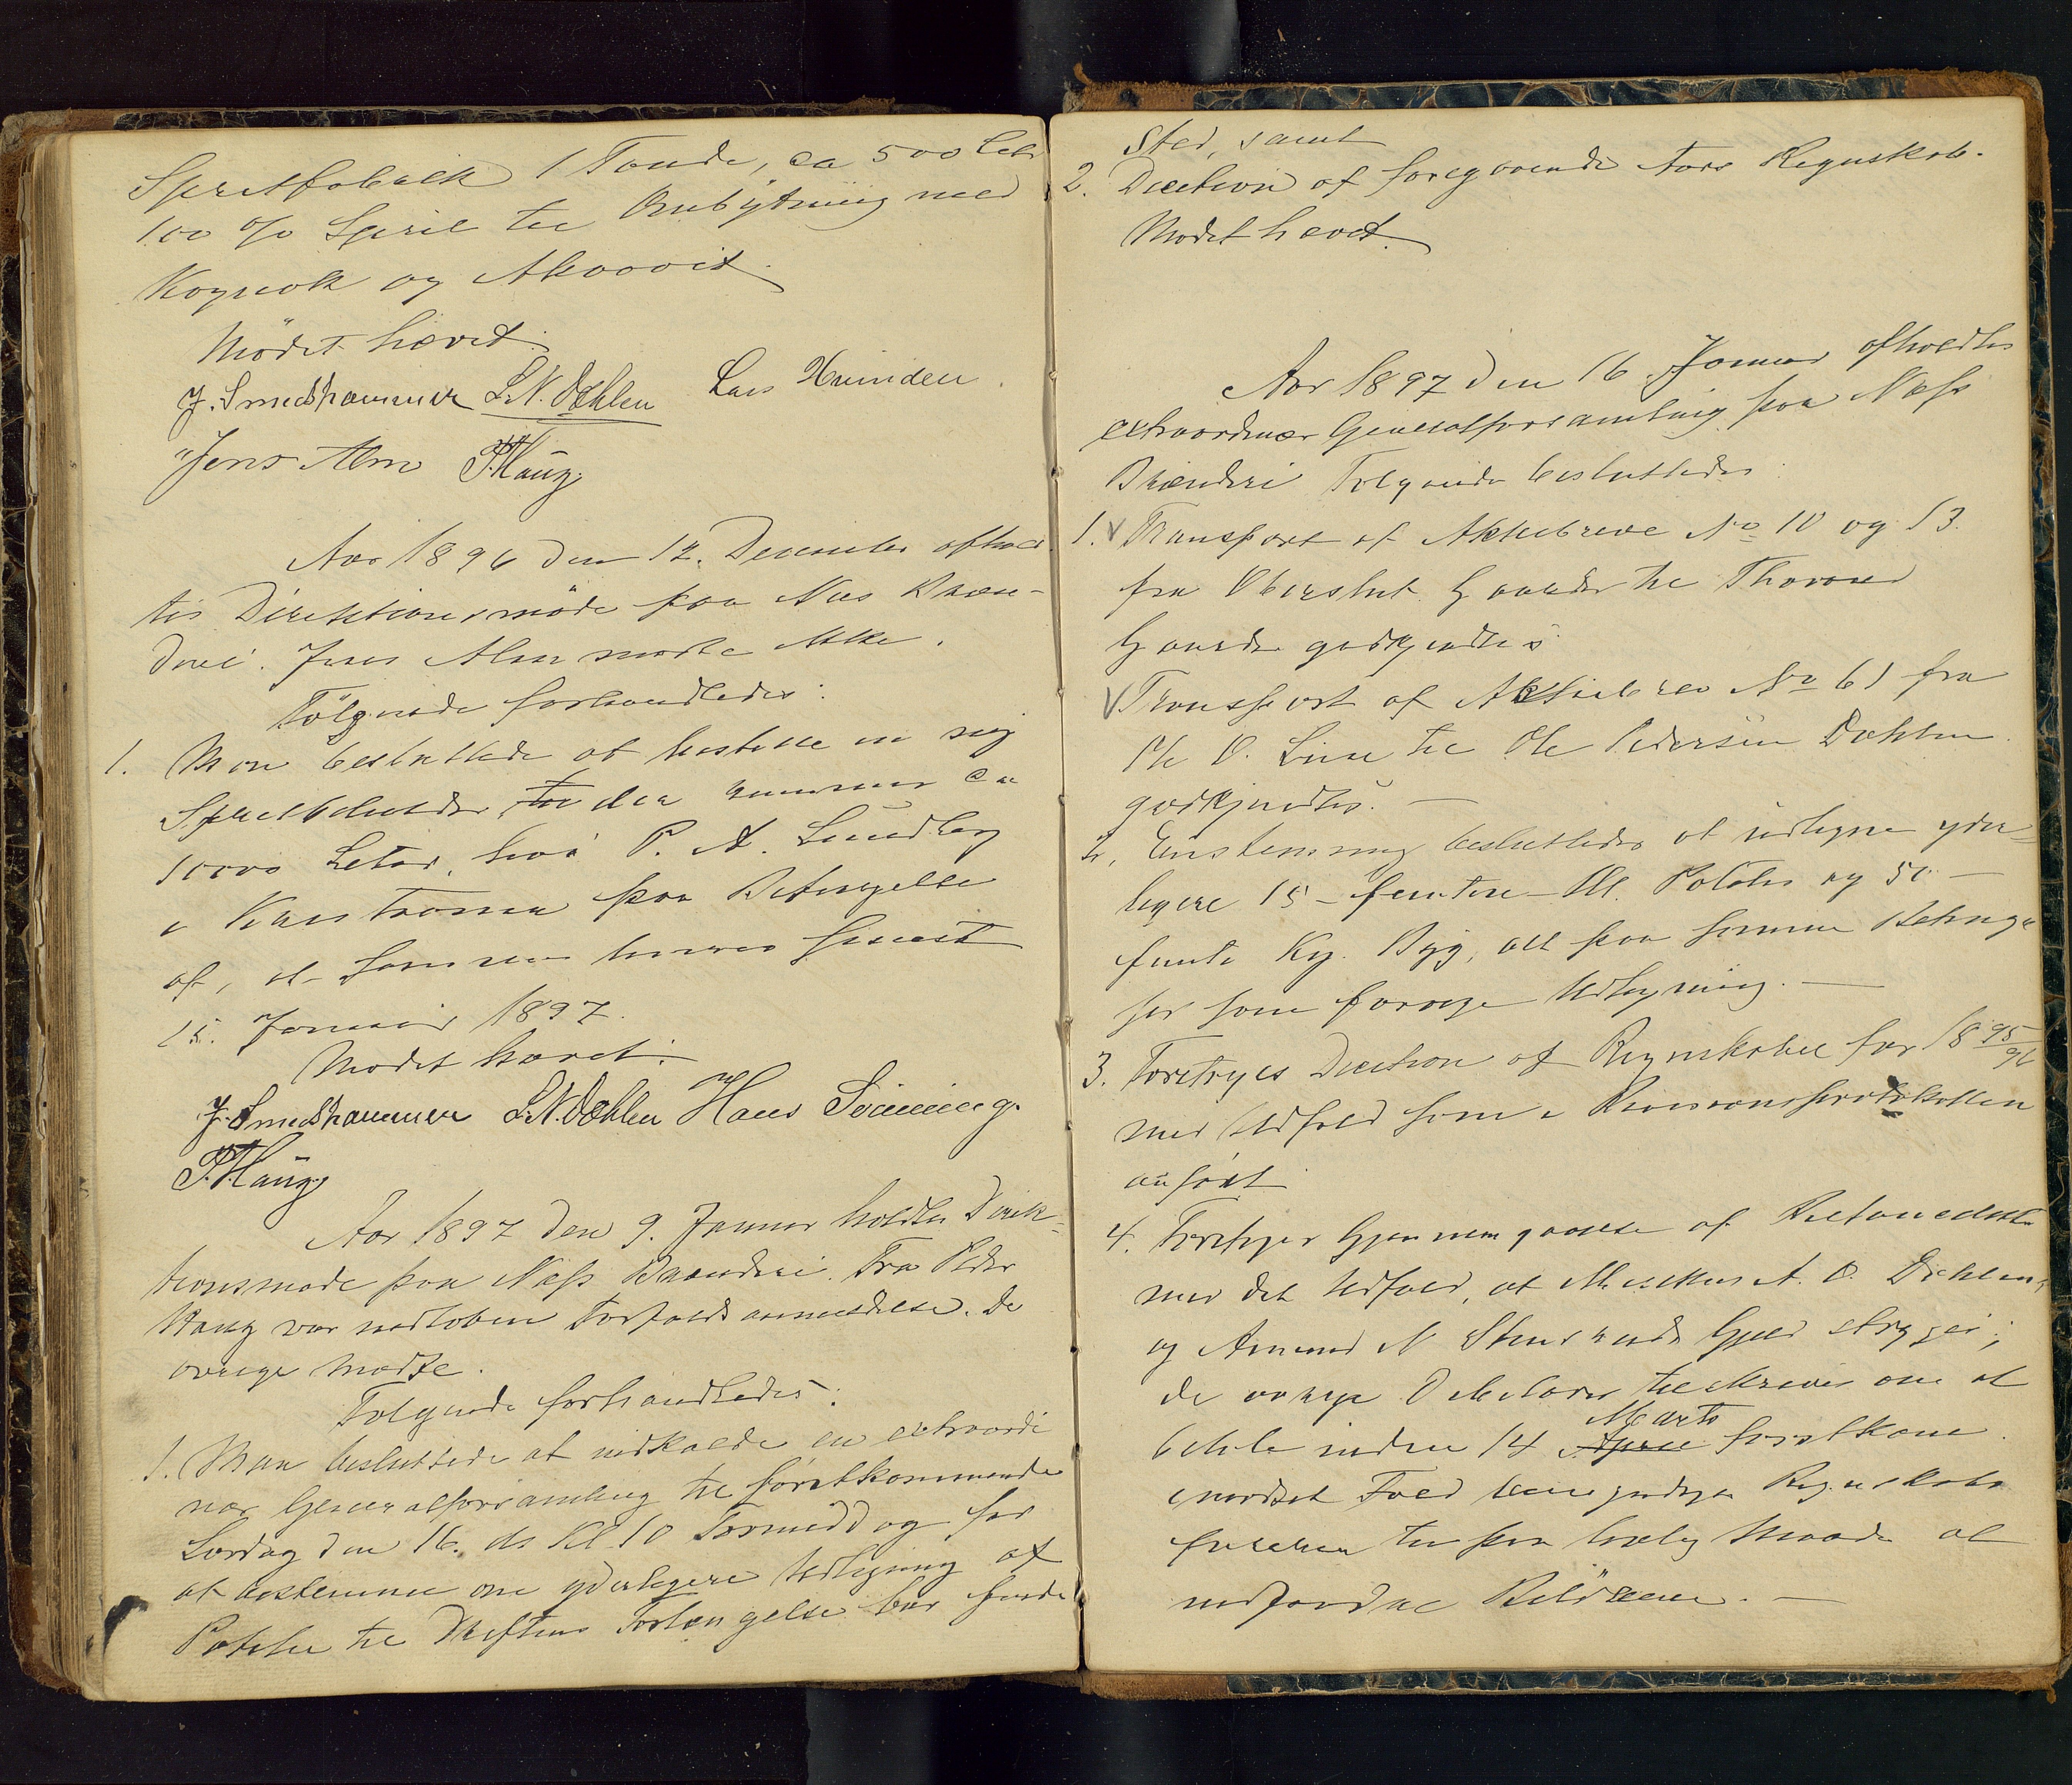 Spritfabrik 1 Tønde, ca 500 Lete
100 % Sprit til Ombytning med
Kognak og Akvavit.
Mødet hævet.
J. Smedshammer L.N. Dæhlen Lars Hvinden.
Jens Alm P. Haug.
Aar 1896 den 12. December afhol
tes Direktionsmøde paa Næs Bræn-
deri. Jens Alm mødte ikke.
Følgende forhandledes:
1. Man besluttede at bestille en ny
Spritbeholder, der rummer ca
10000 Leter, hos P. A. Lundberg
i Kristiania paa Betingelse
af, at samme leveres senest
15. Januar 1897.
Mødet hævet.
J. Smedshammer L.N. Dæhlen Hans Sinning.
P. Haug
Aar 1897 den 9. Januar holdtes Direk-
tionsmøde paa Næss Brænderi. Fra Peder
Haug var indløben Forfaldsanmeldelse. De
øvrige mødte.
Følgende forhandledes:
1. Man besluttede at indkalde en extraordi
nær Generalforsamling til førstkommende
Lørdag den 16. ds Kl 10 Formiddag for
at bestemme om yderligere Udligning af
Poteter til Driftens Forlængelse bør finde
Sted, samt
2. Decition af foregaaende Aars Regnskab.
Mødet hævet.
Aar 1897 den 16. Januar afholdtes
extraordinær Generalforsamling paa Næss
Brænderi. Følgende besluttedes
1. V Transport af Aktiebreve No 10 og 13.
fra Oberstlnt. Gaarder til Thorvald
Gaarder godkjendtes
V Transport af Aktiebrev No 61 fra
Ole O. Lien til Ole Pedersen Dæhlen
godkjendtes. —
2. Enstemmig besluttedes at udligne yder-
ligere 15 - femten - Hl. Poteter og 50 -
femti Kg. Byg, alt paa samme Betingel
ser som forrige Udligning. —
3. Foretoges Decition af Regnskabet for 1895/96
med Udfald som i Revisionsprotokollen
anført
4. Foretoges Gjennemgaaelse af Restancelisten
med det Udfald, at A. O. Dæhlens
og Amund N Gjæld stryges;
de øvrige Debitorer tilskrives om at
betale inden 14 April Marts førstkom.
i modsat Fald bemyndiges Regnskabs
føreren til paa lovlig Maade at
inddrive Beløbene. —